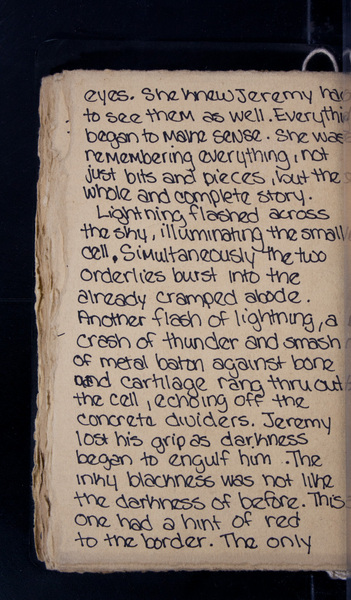 eyes. She knew Jeremy had
to see them as well. Everythi
began to make sense. She was
remembering everything, not
just bits and pieces, but the
whole and complete story.
Lightning flashed across
the sky, illuminating the small
cell. Simultaneously the two
orderlies burst into the
already cramped abode.
Another flash of lightning, a
crash of thunder and smash
of metal baton against bone
and cartilage rang thru out
the cell, echoing off the
concrete dividers. Jeremy
lost his grip as darkness
began to engulf him. The
inky blackness was not like
the darkness of before. This
one had a hint of red
to the border. The only